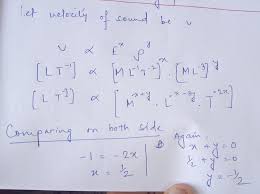 Let velocity of sound be v
v ∝ E^x ρ^y
[L T^-1] ∝ [M L^-1 T^-2]^x . [M L^-3]^y
[L T^-1] ∝ [M^x+y . L^-x-3y . T^-2x]
Comparing on both side
-1 = -2x
x = 1/2
Again
x + y = 0
1/2 + y = 0
y = -1/2